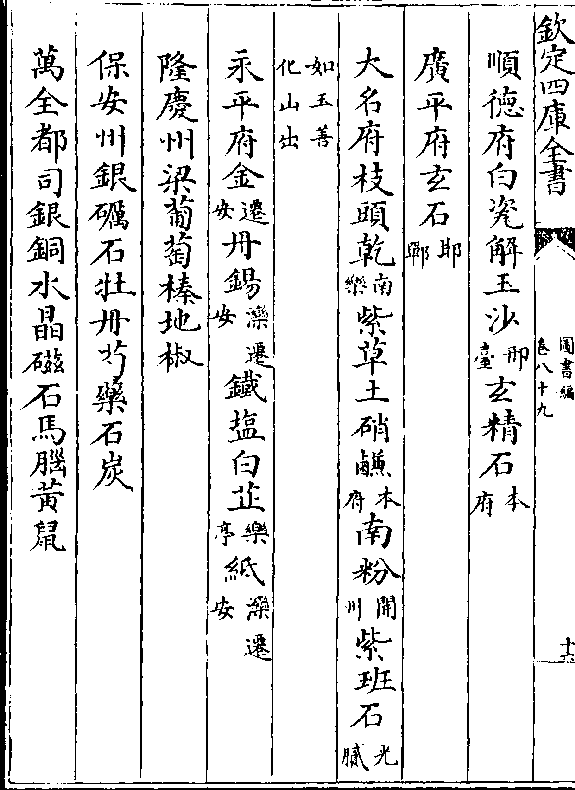 欽定四庫全書
圖書編
卷八十九
十六
順德府白瓷解玉沙邢臺玄精石本府
廣平府玄石邯鄲
大名府枝頭乾南樂紫草土硝鹻本府南粉開州紫班石光膩
如玉善化山出
永平府金遷安丹錫灤遷安鐵塩白芷樂亭紙灤遷安
隆慶州梁葡萄榛地椒
保安州銀礪石牡丹芍藥石炭
萬全都司銀銅水晶磁石馬腦黃鼠